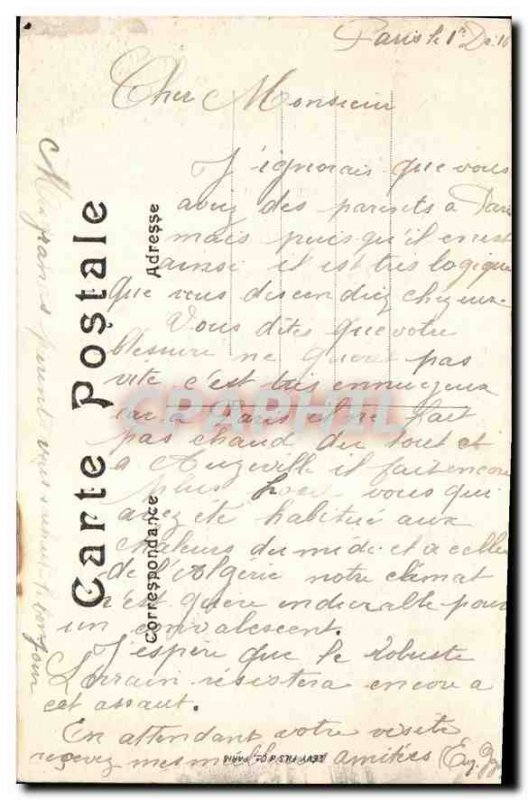 Paris le 1er
Cher Monsieur
J'ignorais que vous
avez des parents à Paris
mais puisqu'il en est
ainsi il est très logique
que vous descendiez chez eux
Vous dites que votre
blessure ne guérit pas
vite c'est très ennuyeux
car à Paris il ne fait
pas chaud du tout et
à il fait encore
plus vous qui
avez été habitué aux
chaleurs du midi et à celles
de l'Algérie notre climat
n'est guère endurable pour
un convalescent.
J'espère que le robuste
Lorrain résistera encore à
cet assaut.
En attendant votre visite
recevez mes amitiés
Carte Postale
Adresse
Correspondance
LEVY FILS & Cie PARIS
CPAPHIL